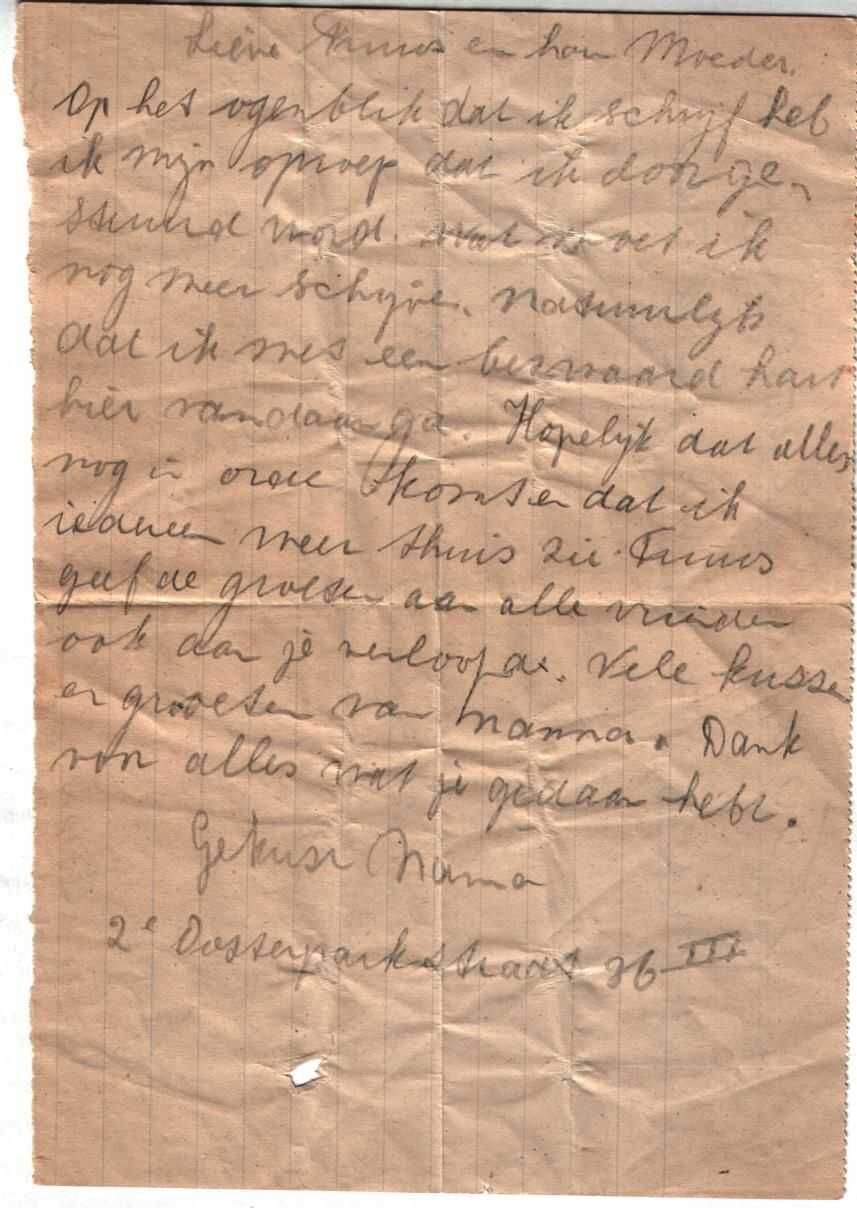 Lieve Truus en Moeder.
Op het ogenblik dat ik schrijf heb
ik mijn oproep dat ik doorge-
stuurd word. wat moet ik
nog meer schrijve. Natuurlijk
dat ik met een bezwaard hart
hier vandaan ga. Hopelijk dat alles
nog in orde komt en dat ik
iedereen weer thuis zie. Truus
geef de groeten aan alle vrienden
ook aan je verloofde. Vele kussen
en groeten van Manna. Dank
voor alles wat je gedaan hebt.
Gekust Manna
2e Oosterparkstraat 36 III